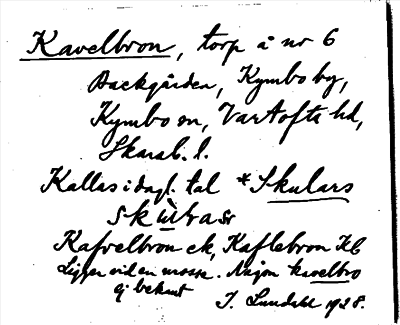 Kavelbron, torp å nr 6
Backgården, Kymbo by,
Kymbo sn, Vartofta hd,
Skarab. l.
Kallas i dagl. tal *Skulars
skùlrasr
Kafvelbron ek, Kaflebron Kb
Ligger vid en mosse. Någon kavelbro
ej bekant
I. Lundahl 1928.